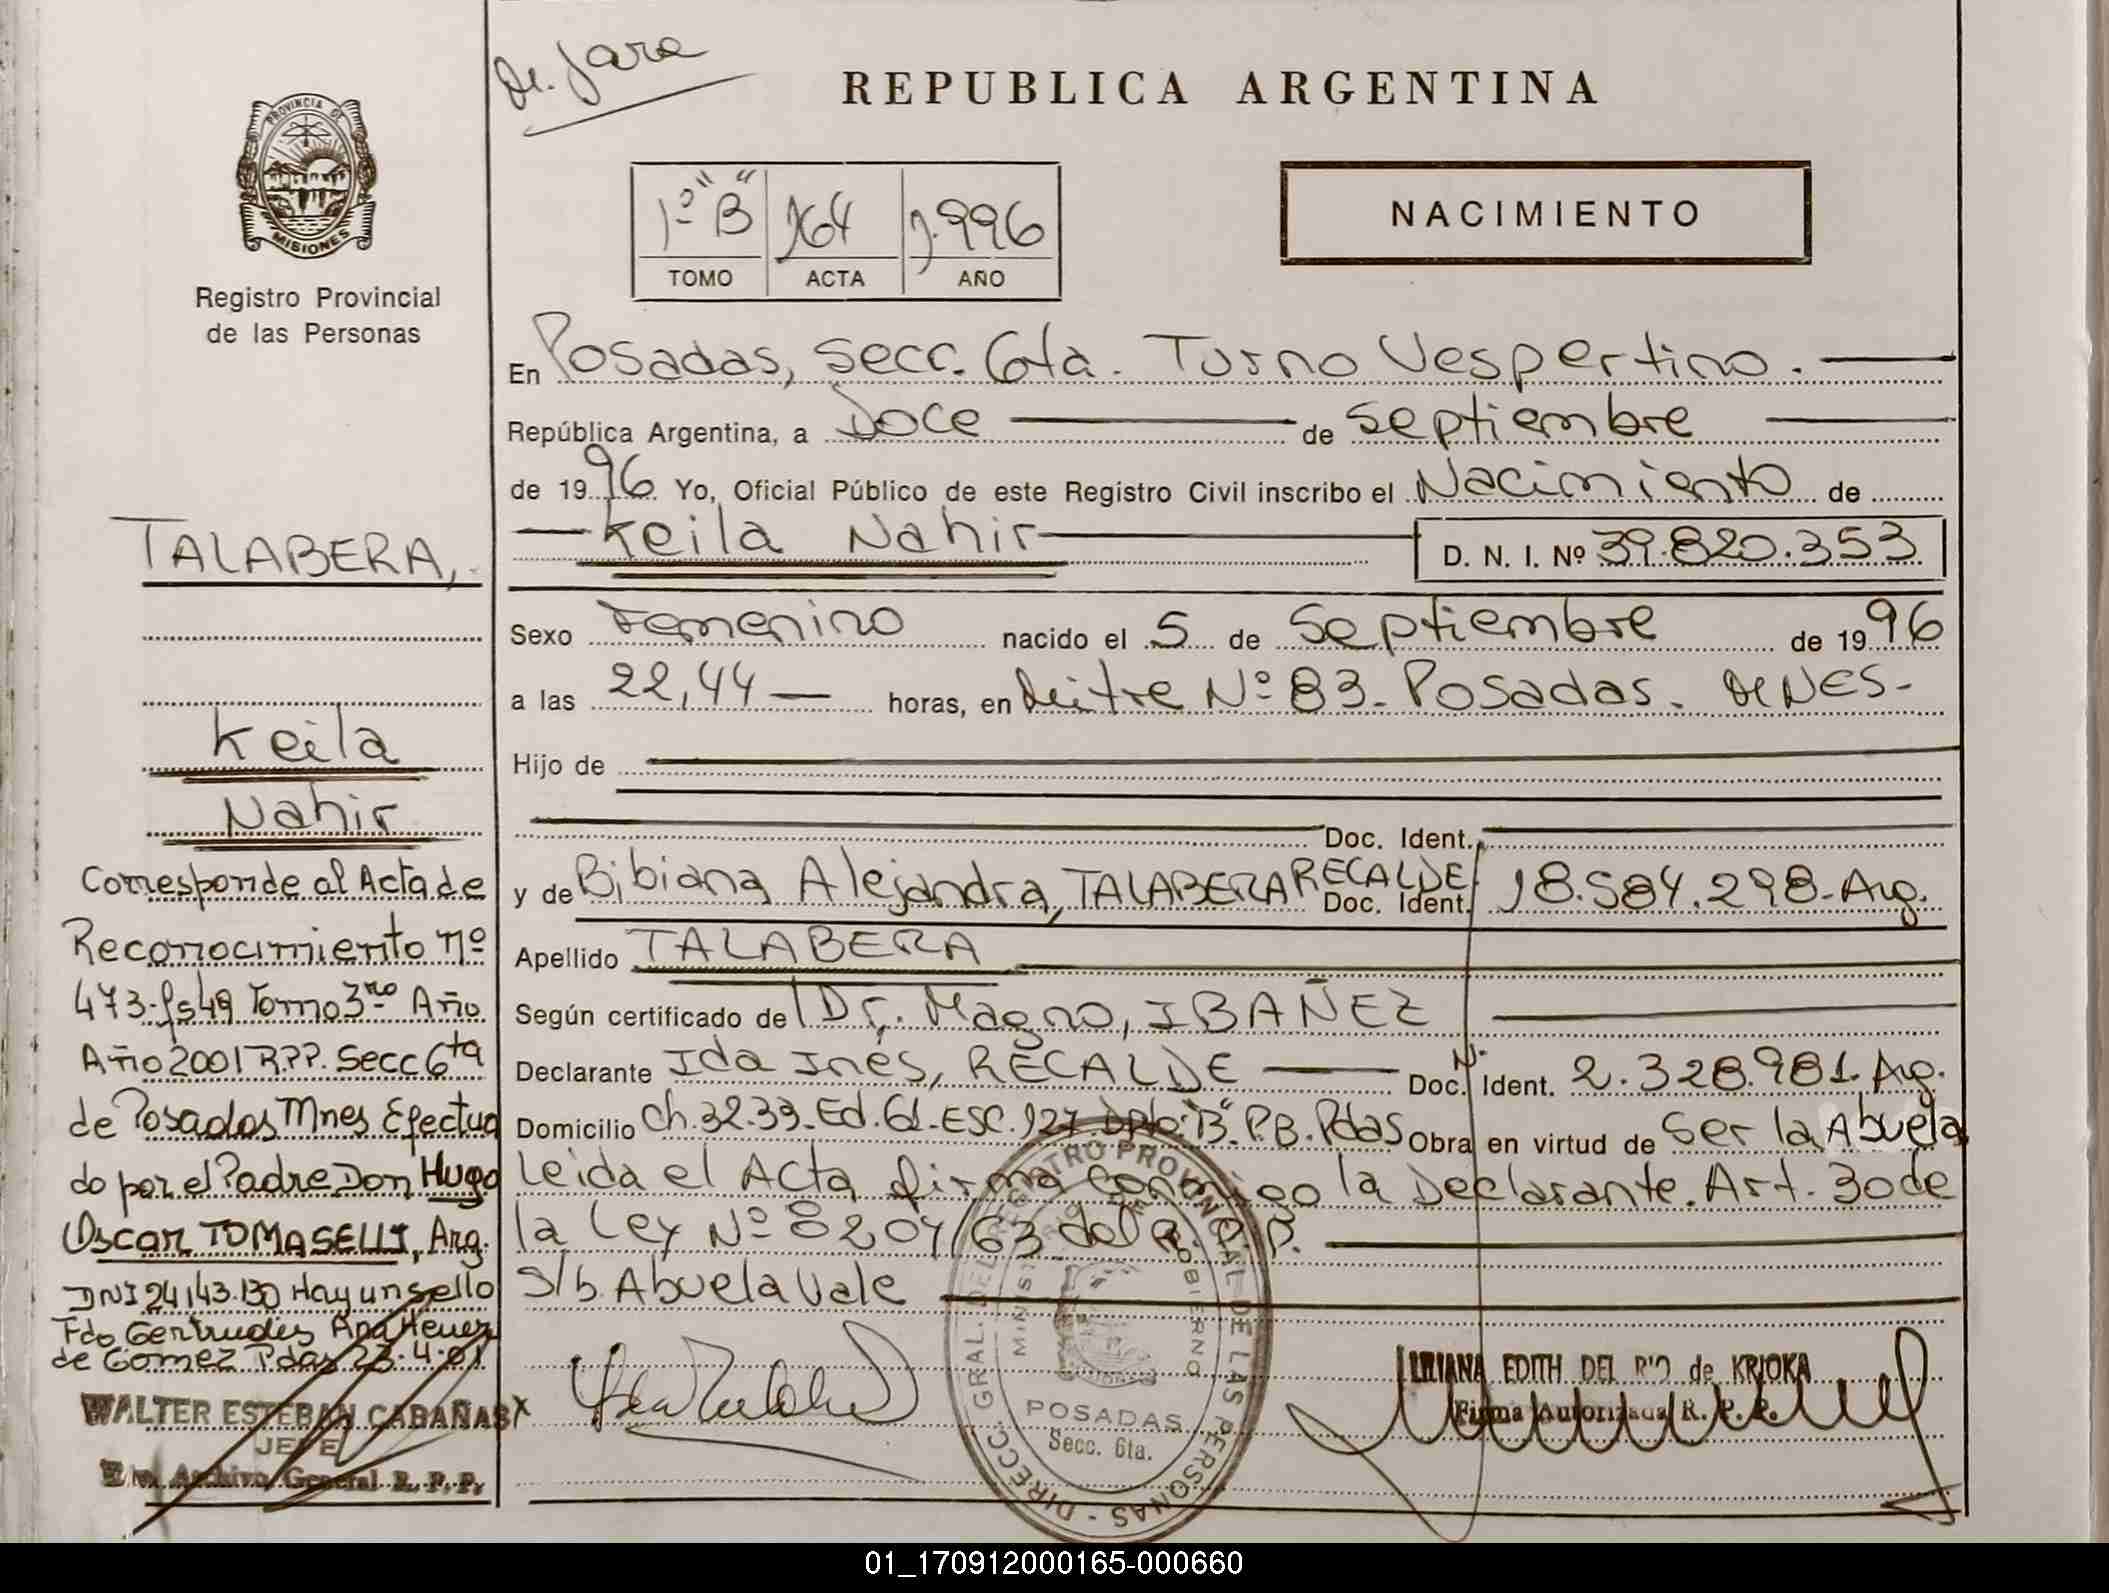 De. Jara
REPUBLICA ARGENTINA
PROVINCIA DE
MISIONES
Registro Provincial
de las Personas
1º "B" 164 1.996
TOMO ACTA AÑO
NACIMIENTO
En Posadas, Secc. 6ta. Turno Vespertino.
República Argentina, a Doce de Septiembre
de 1996. Yo, Oficial Público de este Registro Civil inscribo el Nacimiento de
Keila Nahir D. N. I. Nº 39.820.353
Sexo Femenino nacido el 5 de Septiembre de 1996
a las 22,44 horas, en Mitre Nº 83. Posadas. MNES-
Hijo de
Doc. Ident.
y de Bibiana Alejandra, TALABERA RECALDE Doc. Ident. 18.584.298-Arg.
Apellido TALABERA
Según certificado de Dr. Magno, IBAÑEZ
Declarante Ida Inés, RECALDE Doc. Ident. Nº 2.328.981. Arg.
Domicilio Ch.32.33-Ed.61-ESC.127-Dpto."B".P.B. Pdas Obra en virtud de Ser la Abuela
Leida el Acta firma conmigo la Declarante. Art. 30 de
la Ley Nº 8204/63 del R.P.P.
S/b Abuela Vale
TALABERA,
Keila
Nahir
Corresponde al Acta de
Reconocimiento nº
473-fs49 Tomo 3ro Año
Año 2001 R.P.P. Secc 6ta
de Posadas Mnes Efectua
do por el Padre Don Hugo
Oscar TOMASELLI, Arg.
DNI 24.143.130 Hay un sello
Fdo Gertrudis Ana
de Gomez Pdas 23.4.01
WALTER ESTEBAN CABAÑAS
JEFE
Archivo General R. P. P.
DIRECC. GRAL. DEL REGISTRO PROVINCIAL DE LAS PERSONAS
MINISTERIO DE GOBIERNO
POSADAS
Secc. 6ta.
LILIANA EDITH DEL RIO de KRIOKA
Firma Autorizada R. P. P.
01_170912000165-000660